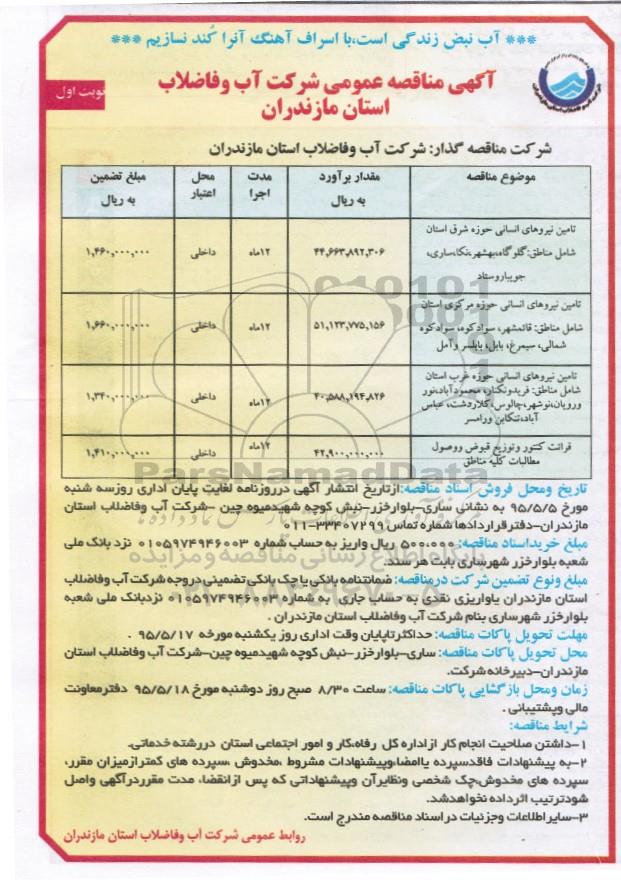 *** آب نبض زندگی است،با اسراف آهنگ آنرا کُند نسازیم ***
آگهی مناقصه عمومی شرکت آب وفاضلاب
استان مازندران
نوبت اول
شرکت مناقصه گذار: شرکت آب وفاضلاب استان مازندران
موضوع مناقصه
مقدار برآورد به ریال
مدت اجرا
محل اعتبار
مبلغ تضمین به ریال
تامین نیروهای انسانی حوزه شرق استان
شامل مناطق:گلوگاه،بهشهر،نکا،ساری،
جویباروستاد
۴۴,۶۶۳,۸۹۲,۳۰۶
۱۲ماه
داخلی
۱,۴۶۰,۰۰۰,۰۰۰
تامین نیروهای انسانی حوزه مرکزی استان
شامل مناطق: قائمشهر، سوادکوه، سوادکوه
شمالی، سیمرغ، بابل، بابلسر وآمل
۵۱,۱۳۳,۷۷۵,۱۵۶
۱۲ماه
داخلی
۱,۶۶۰,۰۰۰,۰۰۰
تامین نیروهای انسانی حوزه غرب استان
شامل مناطق: فریدونکنار، محمودآباد،نور
ورویان،نوشهر،چالوس،کلاردشت، عباس
آباد،تنکابن ورامسر
۴۰,۵۸۸,۱۹۴,۸۲۶
۱۲ماه
داخلی
۱,۳۴۰,۰۰۰,۰۰۰
قرائت کنتور وتوزیع قبوض ووصول
مطالبات کلیه مناطق
۴۲,۹۰۰,۰۰۰,۰۰۰
۱۲ماه
داخلی
۱,۴۱۰,۰۰۰,۰۰۰
ParsNamadData
تاریخ ومحل فروش اسناد مناقصه:ازتاریخ انتشار آگهی درروزنامه لغایت پایان اداری روزسه شنبه
مورخ ۹۵/۵/۵ به نشانی ساری-بلوارخزر-نبش کوچه شهیدمیوه چین -شرکت آب وفاضلاب استان
مازندران-دفترقراردادها شماره تماس ۳۳۴۰۷۲۹۹-۰۱۱
مبلغ خریداسناد مناقصه: ۵۰۰،۰۰۰ ریال واریز به حساب شماره ۰۱۰۵۹۷۴۹۴۶۰۰۳ نزد بانک ملی
شعبه بلوارخزر شهرساری بابت هر سند.
مبلغ ونوع تضمین شرکت درمناقصه: ضمانتنامه بانکی یا چک بانکی تضمینی دروجه شرکت آب وفاضلاب
استان مازندران یاواریزی نقدی به حساب جاری به شماره ۰۱۰۵۹۷۴۹۴۶۰۰۳ نزدبانک ملی شعبه
بلوارخزر شهرساری بنام شرکت آب وفاضلاب استان مازندران .
مهلت تحویل پاکات مناقصه: حداکثرتاپایان وقت اداری روز یکشنبه مورخه ۹۵/۵/۱۷ .
محل تحویل پاکات مناقصه: ساری-بلوارخزر-نبش کوچه شهیدمیوه چین-شرکت آب وفاضلاب استان
مازندران-دبیرخانه شرکت.
زمان ومحل بازگشایی پاکات مناقصه: ساعت ۸/۳۰ صبح روز دوشنبه مورخ ۹۵/۵/۱۸ دفترمعاونت
مالی وپشتیبانی .
شرایط مناقصه:
۱-داشتن صلاحیت انجام کار ازاداره کل رفاه،کار و امور اجتماعی استان دررشته خدماتی.
۲-به پیشنهادات فاقدسپرده یاامضا،وپیشنهادات مشروط ،مخدوش ،سپرده های کمترازمیزان مقرر،
سپرده های مخدوش،چک شخصی ونظایرآن وپیشنهاداتی که پس ازانقضا، مدت مقرردرآگهی واصل
شودترتیب اثرداده نخواهدشد.
۳-سایراطلاعات وجزئیات دراسناد مناقصه مندرج است.
روابط عمومی شرکت آب وفاضلاب استان مازندران